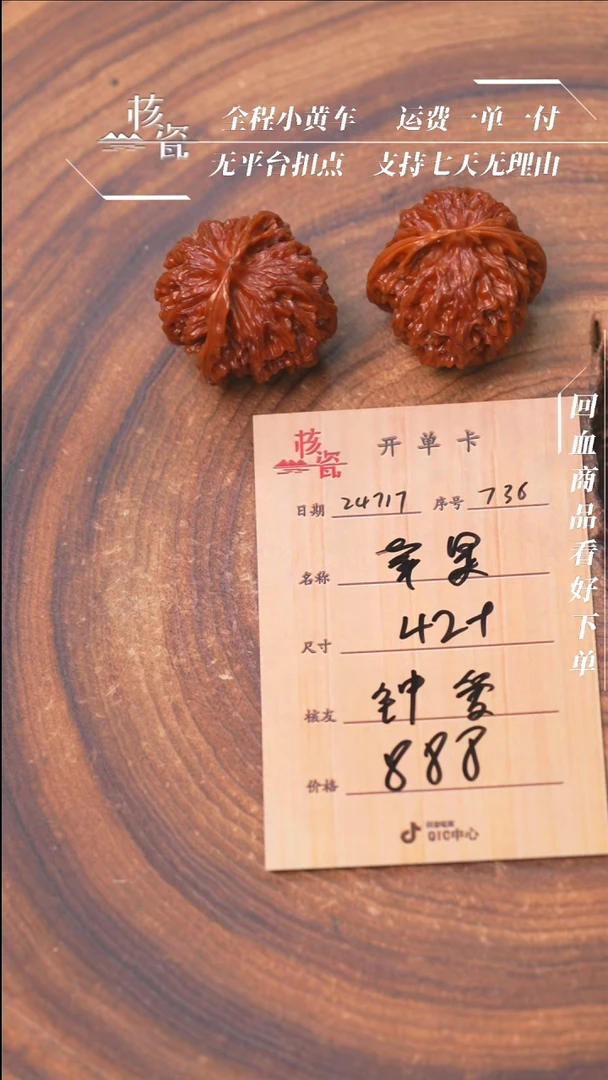 核瓷
全程小黄车 运费一单一付
无平台扣点 支持七天无理由
回血商品看好下单
核瓷
开单卡
日期 24717 序号 736
名称 苹果
尺寸 42+
核友 钟雯
价格 888
抖音电商
QIC中心